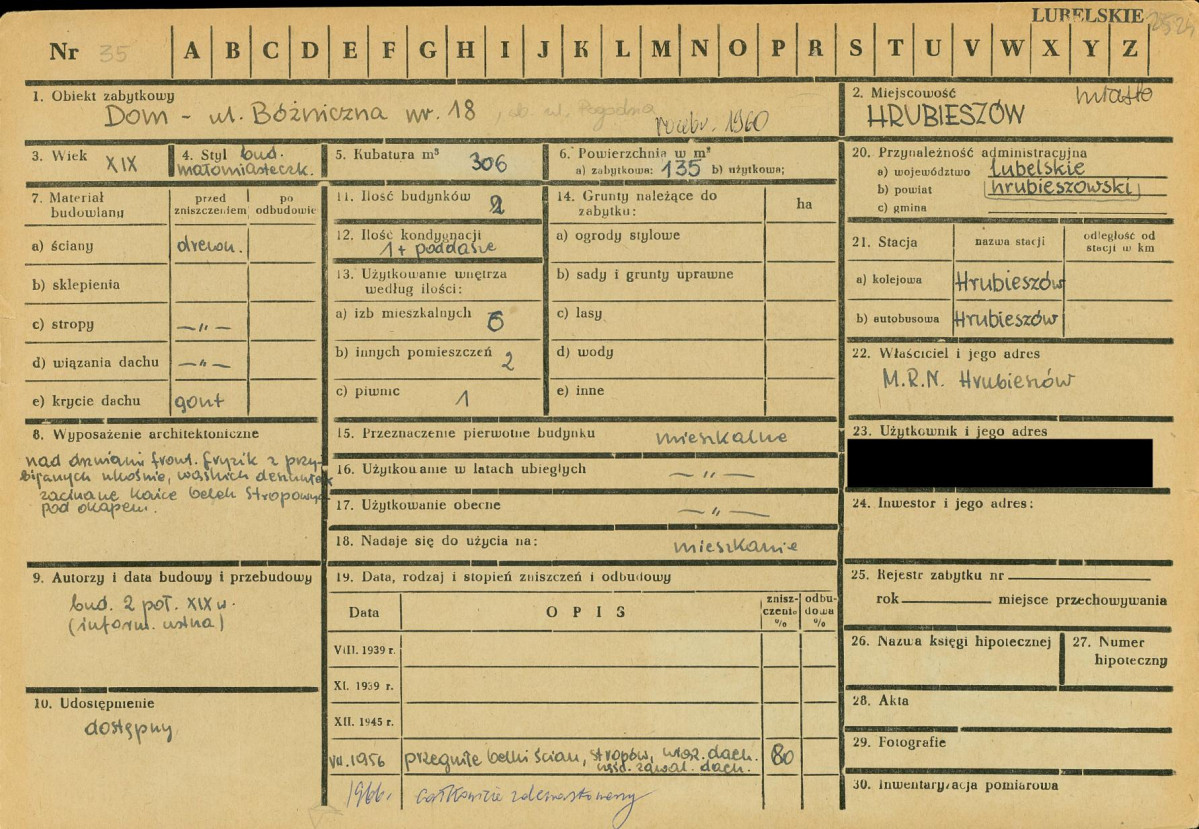 LUBELSKIE
Nr 35 A B C D E F G H I J K L M N O P R S T U V W X Y Z
1. Obiekt zabytkowy
Dom - ul. Bóżniczna nr. 18, ob. ul. Pogodna
rozebr. 1960
2. Miejscowość miasto
HRUBIESZÓW
3. Wiek XIX
4. Styl bud.
małomiasteczk.
5. Kubatura m³ 306
6. Powierzchnia w m²
a) zabytkowa: 135 b) użytkowa;
7. Materiał budowlany
przed zniszczeniem
po odbudowie
a) ściany drewn.
b) sklepienia
c) stropy —„—
d) wiązania dachu —„—
e) krycie dachu gont
8. Wyposażenie architektoniczne
nad drzwiami front. fryzik z przy-
bijanych ukośnie, wąskich deszczułek
zacinane końce belek stropowych
pod okapem.
9. Autorzy i data budowy i przebudowy
bud. 2 poł. XIX w.
(inform. ustna)
10. Udostępnienie
dostępny
11. Ilość budynków 2
12. Ilość kondygnacji
1 + poddasze
13. Użytkowanie wnętrza
według ilości:
a) izb mieszkalnych 6
b) innych pomieszczeń 2
c) piwnic 1
14. Grunty należące do
zabytku: ha
a) ogrody stylowe
b) sady i grunty uprawne
c) lasy
d) wody
e) inne
15. Przeznaczenie pierwotne budynku mieszkalne
16. Użytkowanie w latach ubiegłych —„—
17. Użytkowanie obecne —„—
18. Nadaje się do użycia na: mieszkanie
19. Data, rodzaj i stopień zniszczeń i odbudowy
Data OPIS znisz-czenie % odbu-dowa %
VIII. 1939 r.
XI. 1939 r.
XII. 1945 r.
VII. 1956 przegniłe belki ścian, stropów, więz. dach. 80
1966 r. całkowicie zdewastowany
20. Przynależność administracyjna
a) województwo lubelskie
b) powiat hrubieszowski
c) gmina
21. Stacja nazwa stacji odległość od stacji w km
a) kolejowa Hrubieszów
b) autobusowa Hrubieszów
22. Właściciel i jego adres
M.R.N. Hrubieszów
23. Użytkownik i jego adres
24. Inwestor i jego adres:
25. Rejestr zabytku nr
rok miejsce przechowywania
26. Nazwa księgi hipotecznej
27. Numer
hipoteczny
28. Akta
29. Fotografie
30. Inwentaryzacja pomiarowa